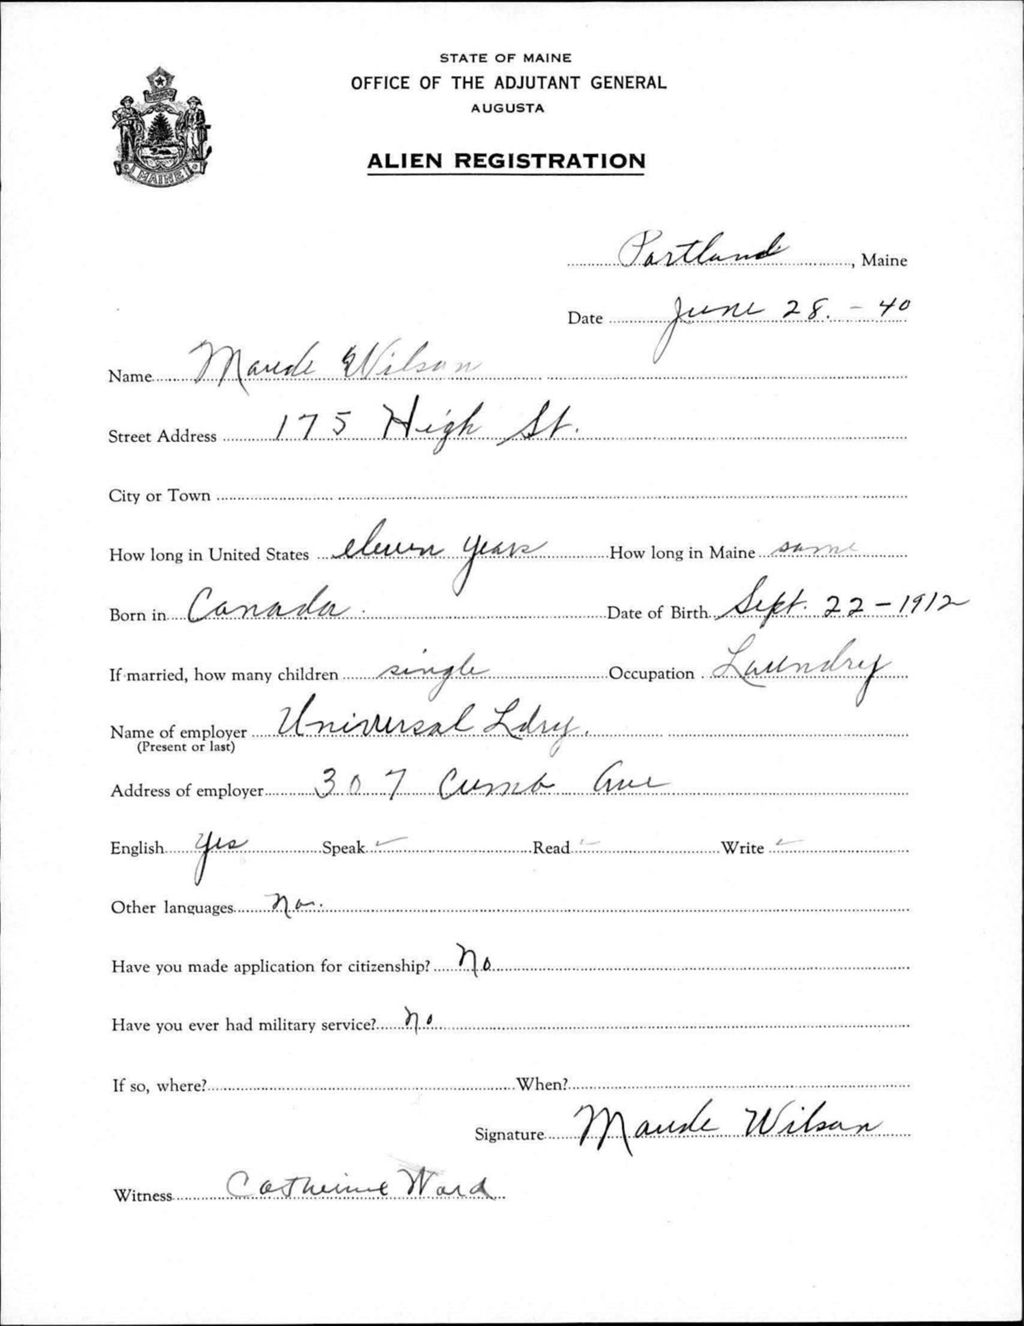 STATE OF MAINE
OFFICE OF THE ADJUTANT GENERAL
AUGUSTA
ALIEN REGISTRATION
MAINE
Portland, Maine
Date June 28. - 40
Name Maude Wilson
Street Address 175 High St.
City or Town
How long in United States eleven years How long in Maine same
Born in Canada. Date of Birth Sept. 22-1912
If married, how many children single Occupation Laundry
Name of employer Universal Ldry.
(Present or last)
Address of employer 307 Cumb Ave
English Yes Speak ✓ Read ✓ Write ✓
Other languages No.
Have you made application for citizenship? No
Have you ever had military service? No
If so, where? When?
Signature Maude Wilson
Witness Catherine Ward